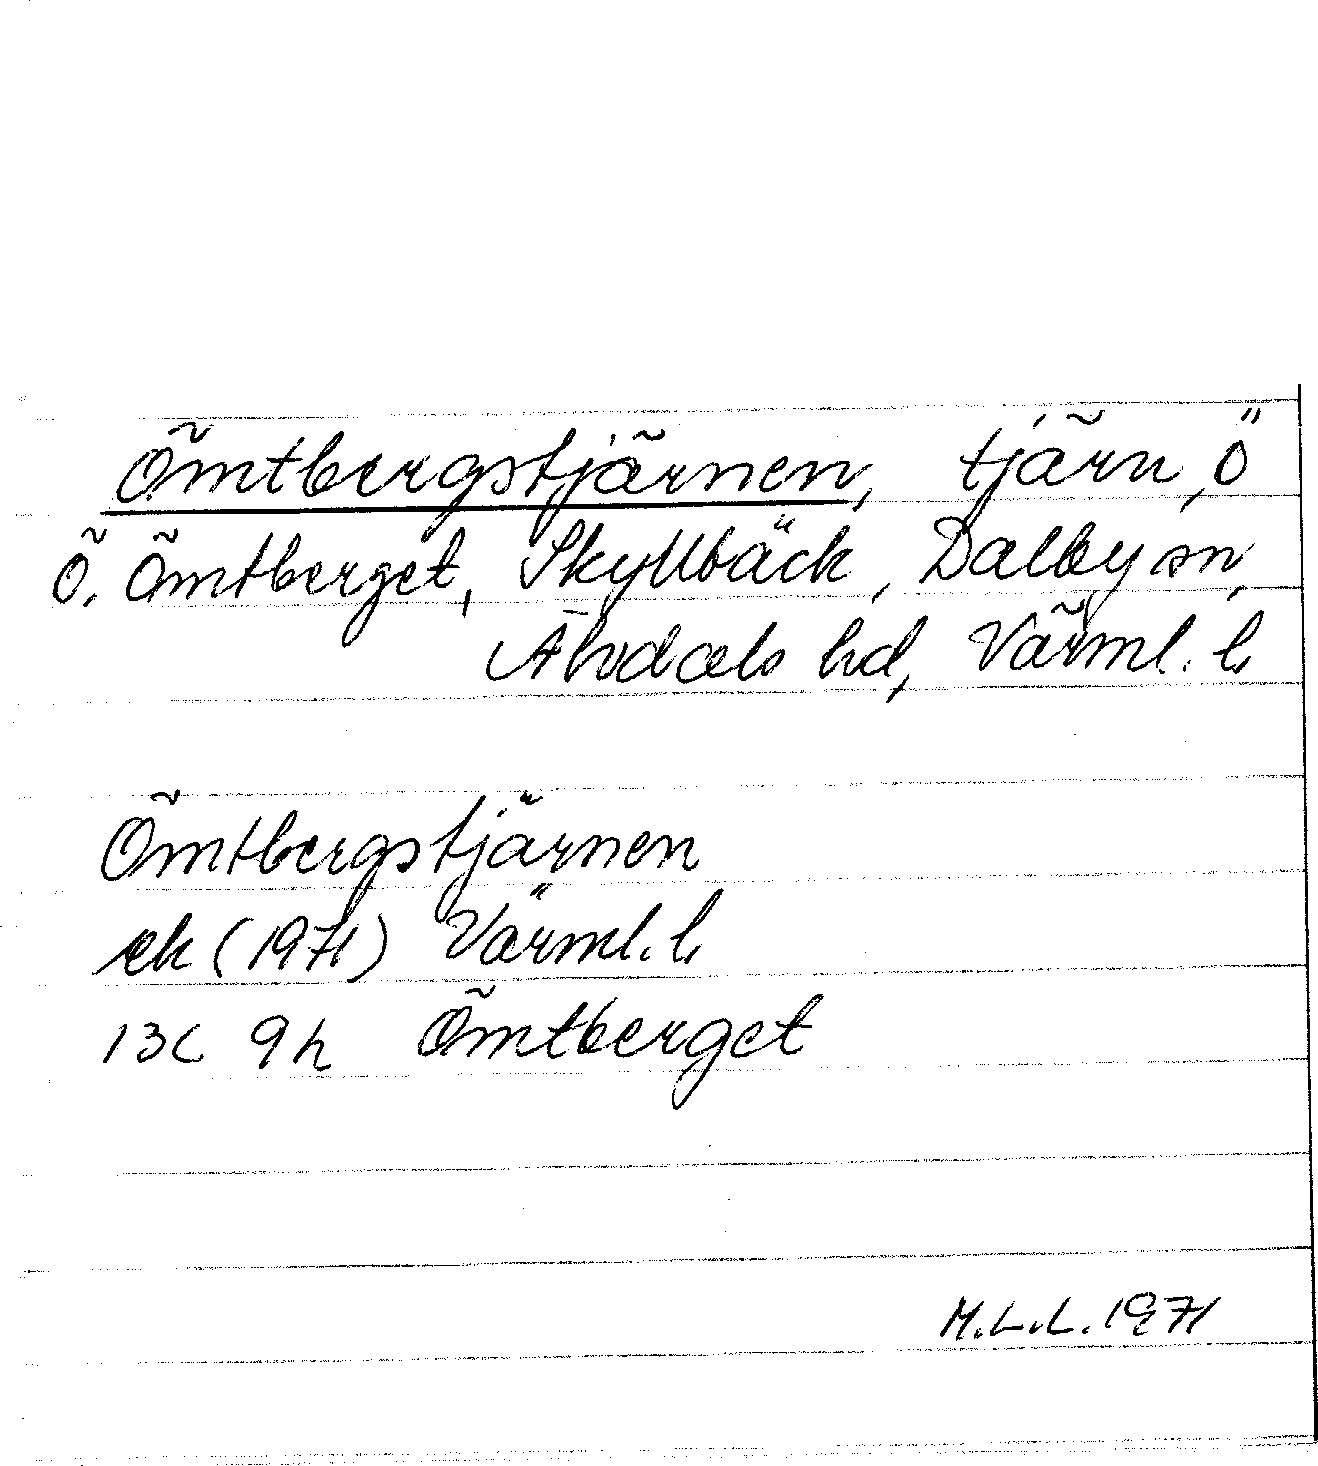 Ömtbergstjärnen, tjärn, ö
Ö. Ömtberget, Skyllbäck, Dalby sn,
Älvdals hd, Värml. l.
Ömtbergstjärnen
ek (1971) Värml. l.
13C 9h Ömtberget
M.L.L. 1971